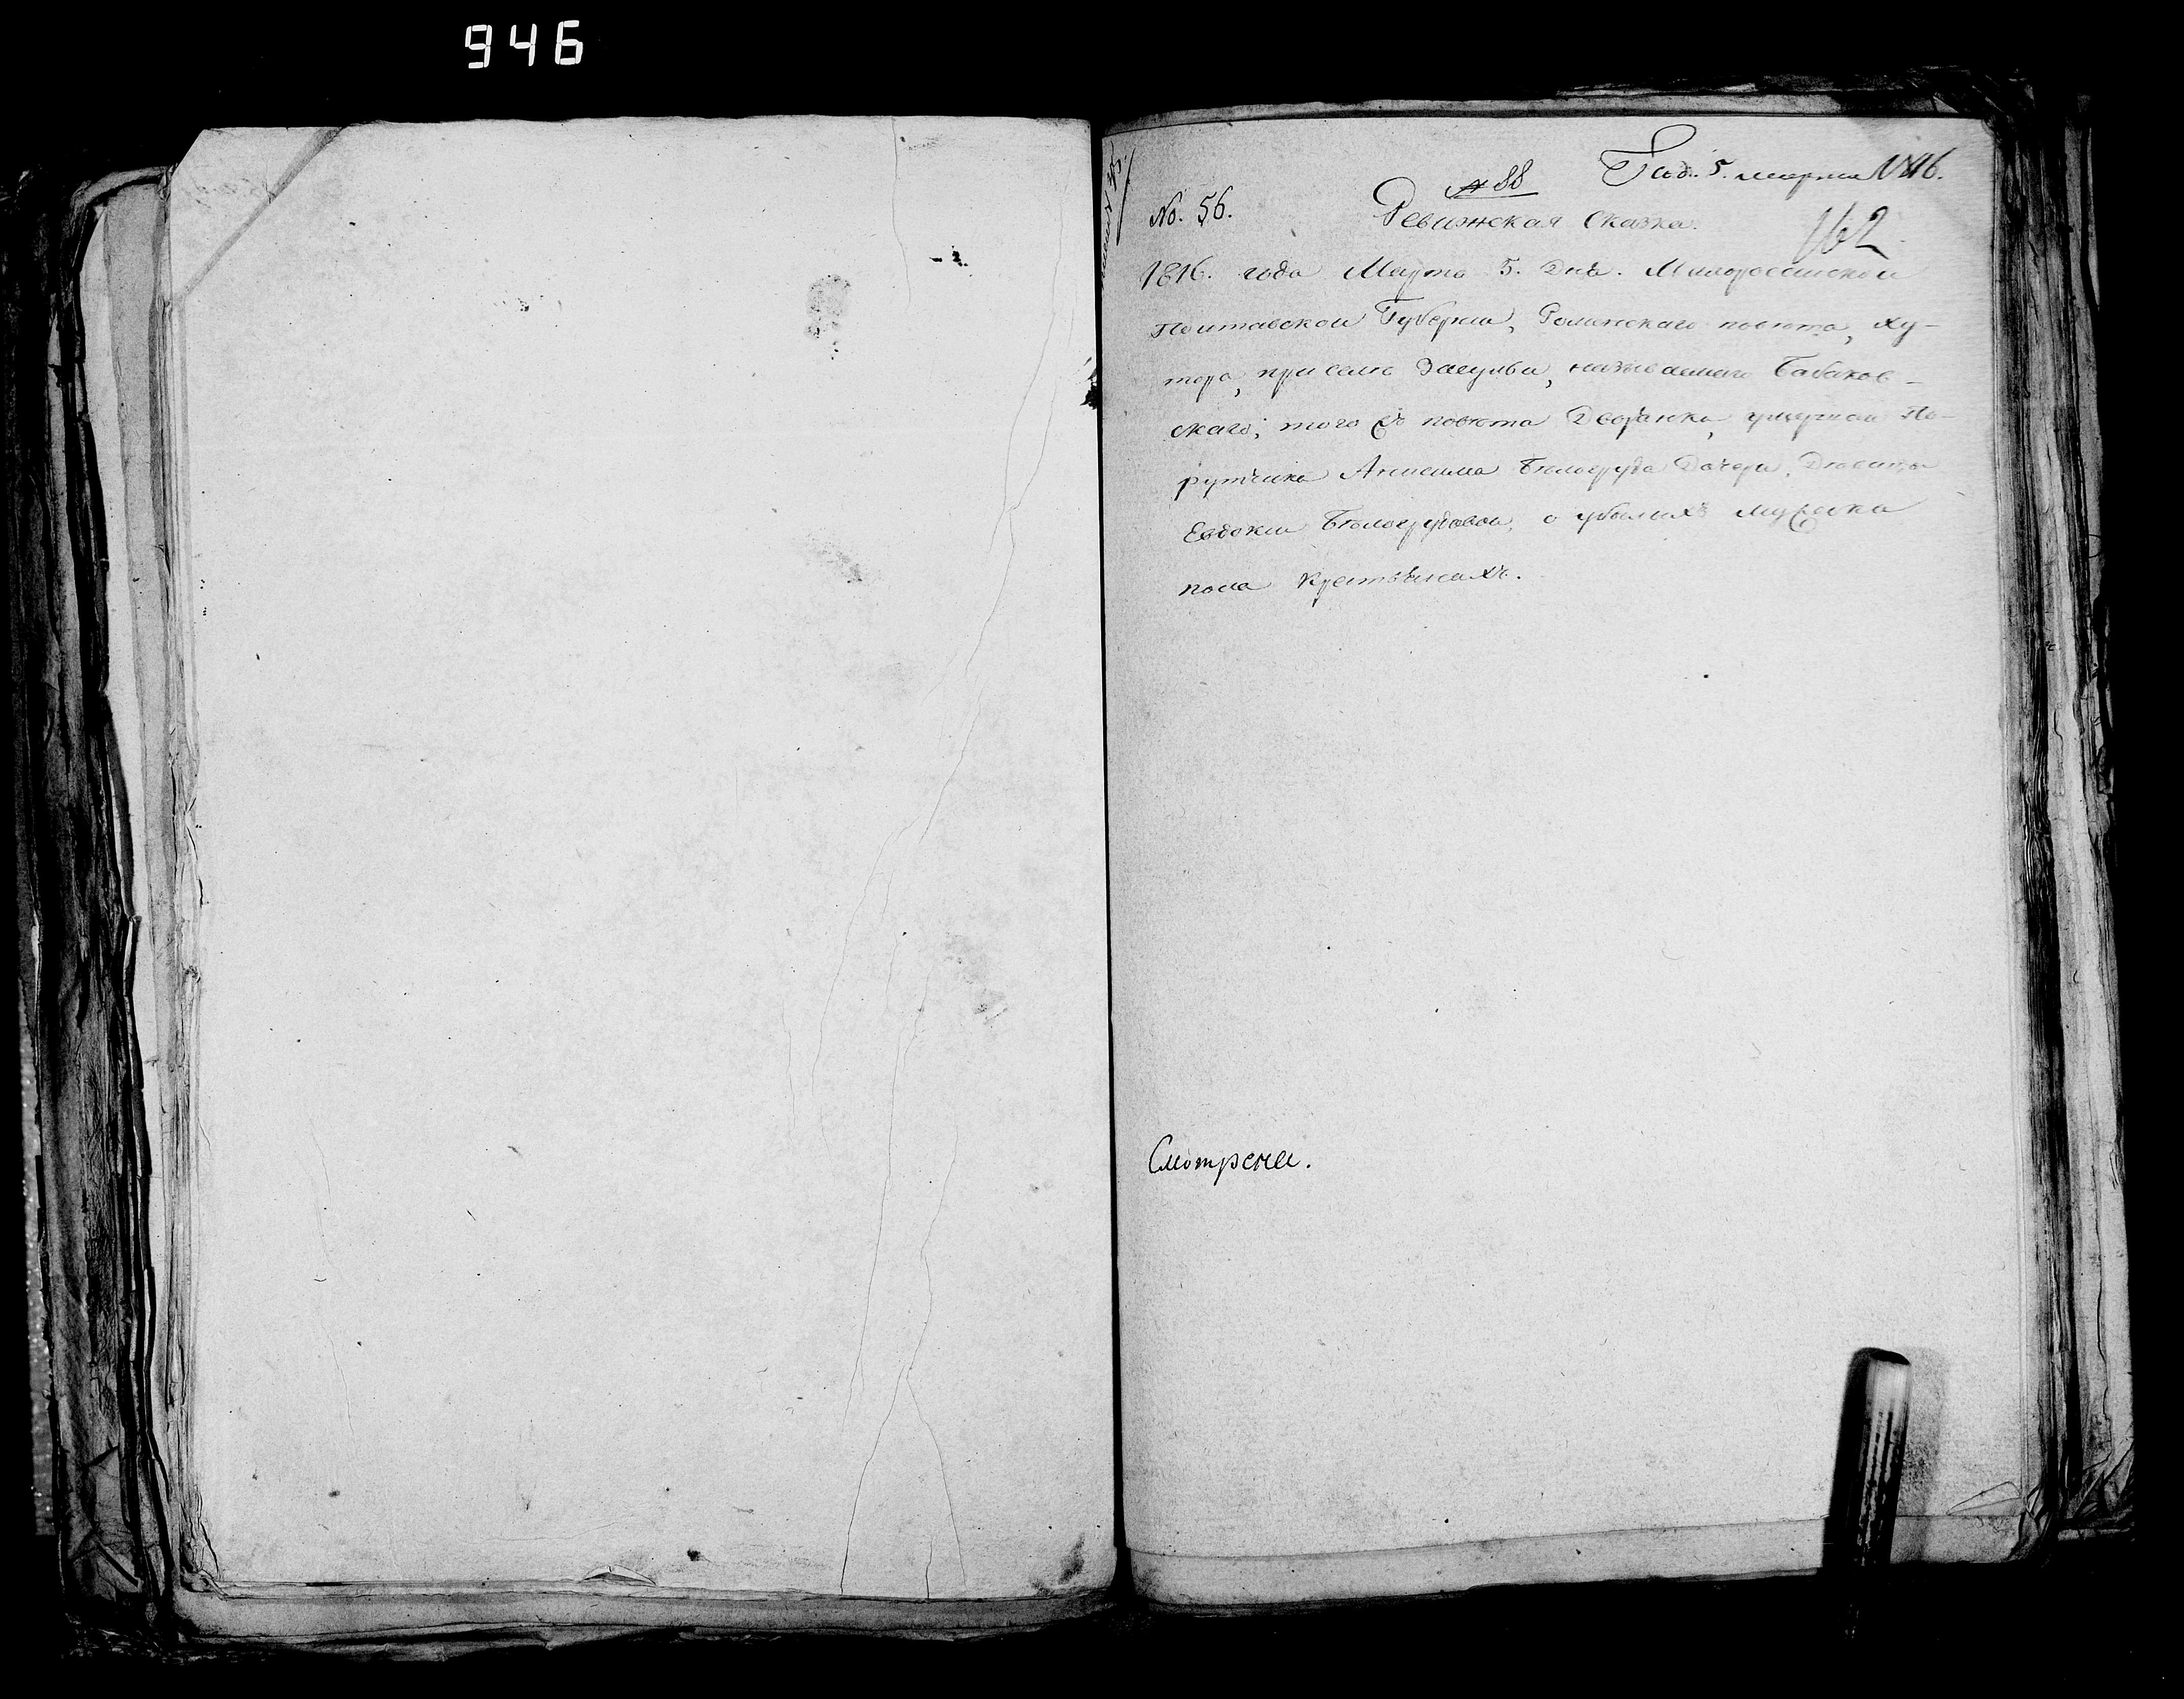 946
№ 88
Под. 5. марта 1816.
No. 56.
Ревижская Сказка.
162
1816. года Марта 5. Дня. Малороссийской
Полтавской Губернии, Роменскаго повѣта, ху-
тора, при селѣ Засульи, называемаго Бабаков-
скаго; того жъ повѣта Дворянки, умершаго По-
рутчика Анисима Бѣлогруда Дочери, Девицы
Евдокии Бѣлогрудовой, о убылихъ мужеска
пола крестьянахъ.
Смотрена.